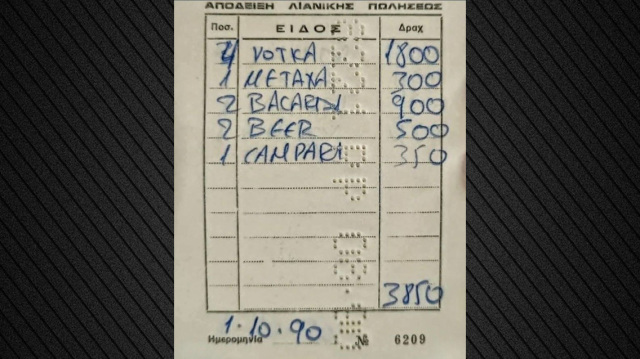 ΑΠΟΔΕΙΞΗ ΛΙΑΝΙΚΗΣ ΠΩΛΗΣΕΩΣ
Ποσ. ΕΙΔΟΣ Δραχ
4 VOTKA 1800
1 METAXA 300
2 BACARDI 900
2 BEER 500
1 CAMPARI 350
3850
1.10.90
Ημερομηνία № 6209